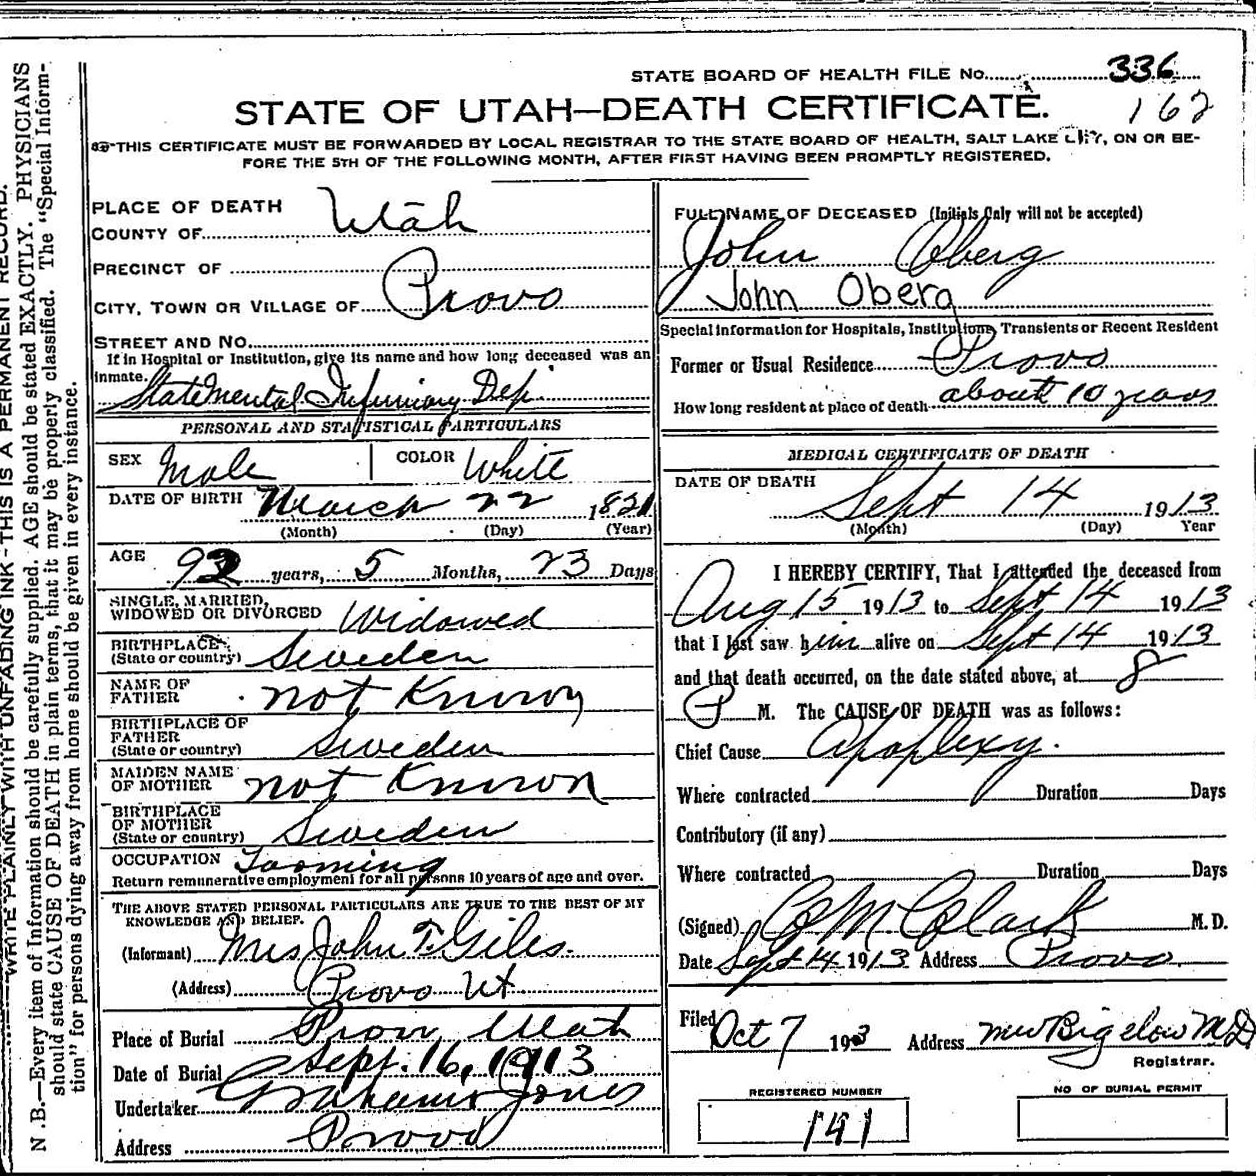 STATE BOARD OF HEALTH FILE No. 336
STATE OF UTAH—DEATH CERTIFICATE. 162
THIS CERTIFICATE MUST BE FORWARDED BY LOCAL REGISTRAR TO THE STATE BOARD OF HEALTH, SALT LAKE CITY, ON OR BE-
FORE THE 5TH OF THE FOLLOWING MONTH, AFTER FIRST HAVING BEEN PROMPTLY REGISTERED.
WRITE PLAINLY WITH UNFADING INK-THIS IS A PERMANENT RECORD.
N.B.—Every item of Information should be carefully supplied. AGE should be stated EXACTLY. PHYSICIANS
should state CAUSE OF DEATH in plain terms, that it may be properly classified. The "Special Inform-
tion" for persons dying away from home should be given in every instance.
PLACE OF DEATH
COUNTY OF Utah
PRECINCT OF
CITY, TOWN OR VILLAGE OF Provo
STREET AND No.
If in Hospital or Institution, give its name and how long deceased was an
inmate. State Mental Infirmary Dep.
PERSONAL AND STATISTICAL PARTICULARS
SEX Male COLOR White
DATE OF BIRTH March 22 1821
(Month) (Day) (Year)
AGE 92 years, 5 Months, 23 Days
SINGLE, MARRIED,
WIDOWED OR DIVORCED Widowed
BIRTHPLACE
(State or country) Sweden
NAME OF
FATHER not Known
BIRTHPLACE OF
FATHER
(State or country) Sweden
MAIDEN NAME
OF MOTHER not Known
BIRTHPLACE
OF MOTHER
(State or country) Sweden
OCCUPATION
Return remunerative employment for all persons 10 years of age and over.
THE ABOVE STATED PERSONAL PARTICULARS ARE TRUE TO THE BEST OF MY
KNOWLEDGE AND BELIEF.
(Informant) Mrs John T. Giles.
(Address) Provo Ut
Place of Burial Provo Utah
Date of Burial Sept. 16, 1913
Undertaker Jones
Address Provo
FULL NAME OF DECEASED (Initials Only will not be accepted)
John Oberg
John Oberg
Special information for Hospitals, Institutions, Transients or Recent Resident
Former or Usual Residence Provo
How long resident at place of death about 10 years
MEDICAL CERTIFICATE OF DEATH
DATE OF DEATH
Sept 14 1913
(Month) (Day) Year
I HEREBY CERTIFY, That I attended the deceased from
Aug 15 1913 to Sept 14 1913
that I last saw him alive on Sept 14 1913
and that death occurred, on the date stated above, at 8
P M. The CAUSE OF DEATH was as follows:
Chief Cause Apoplexy.
Where contracted Duration Days
Contributory (if any)
Where contracted Duration Days
(Signed) Clark M.D.
Date Sept 14 1913 Address Provo
Filed Oct 7 1913 Address Bigelow MD
Registrar.
REGISTERED NUMBER
191
NO OF BURIAL PERMIT